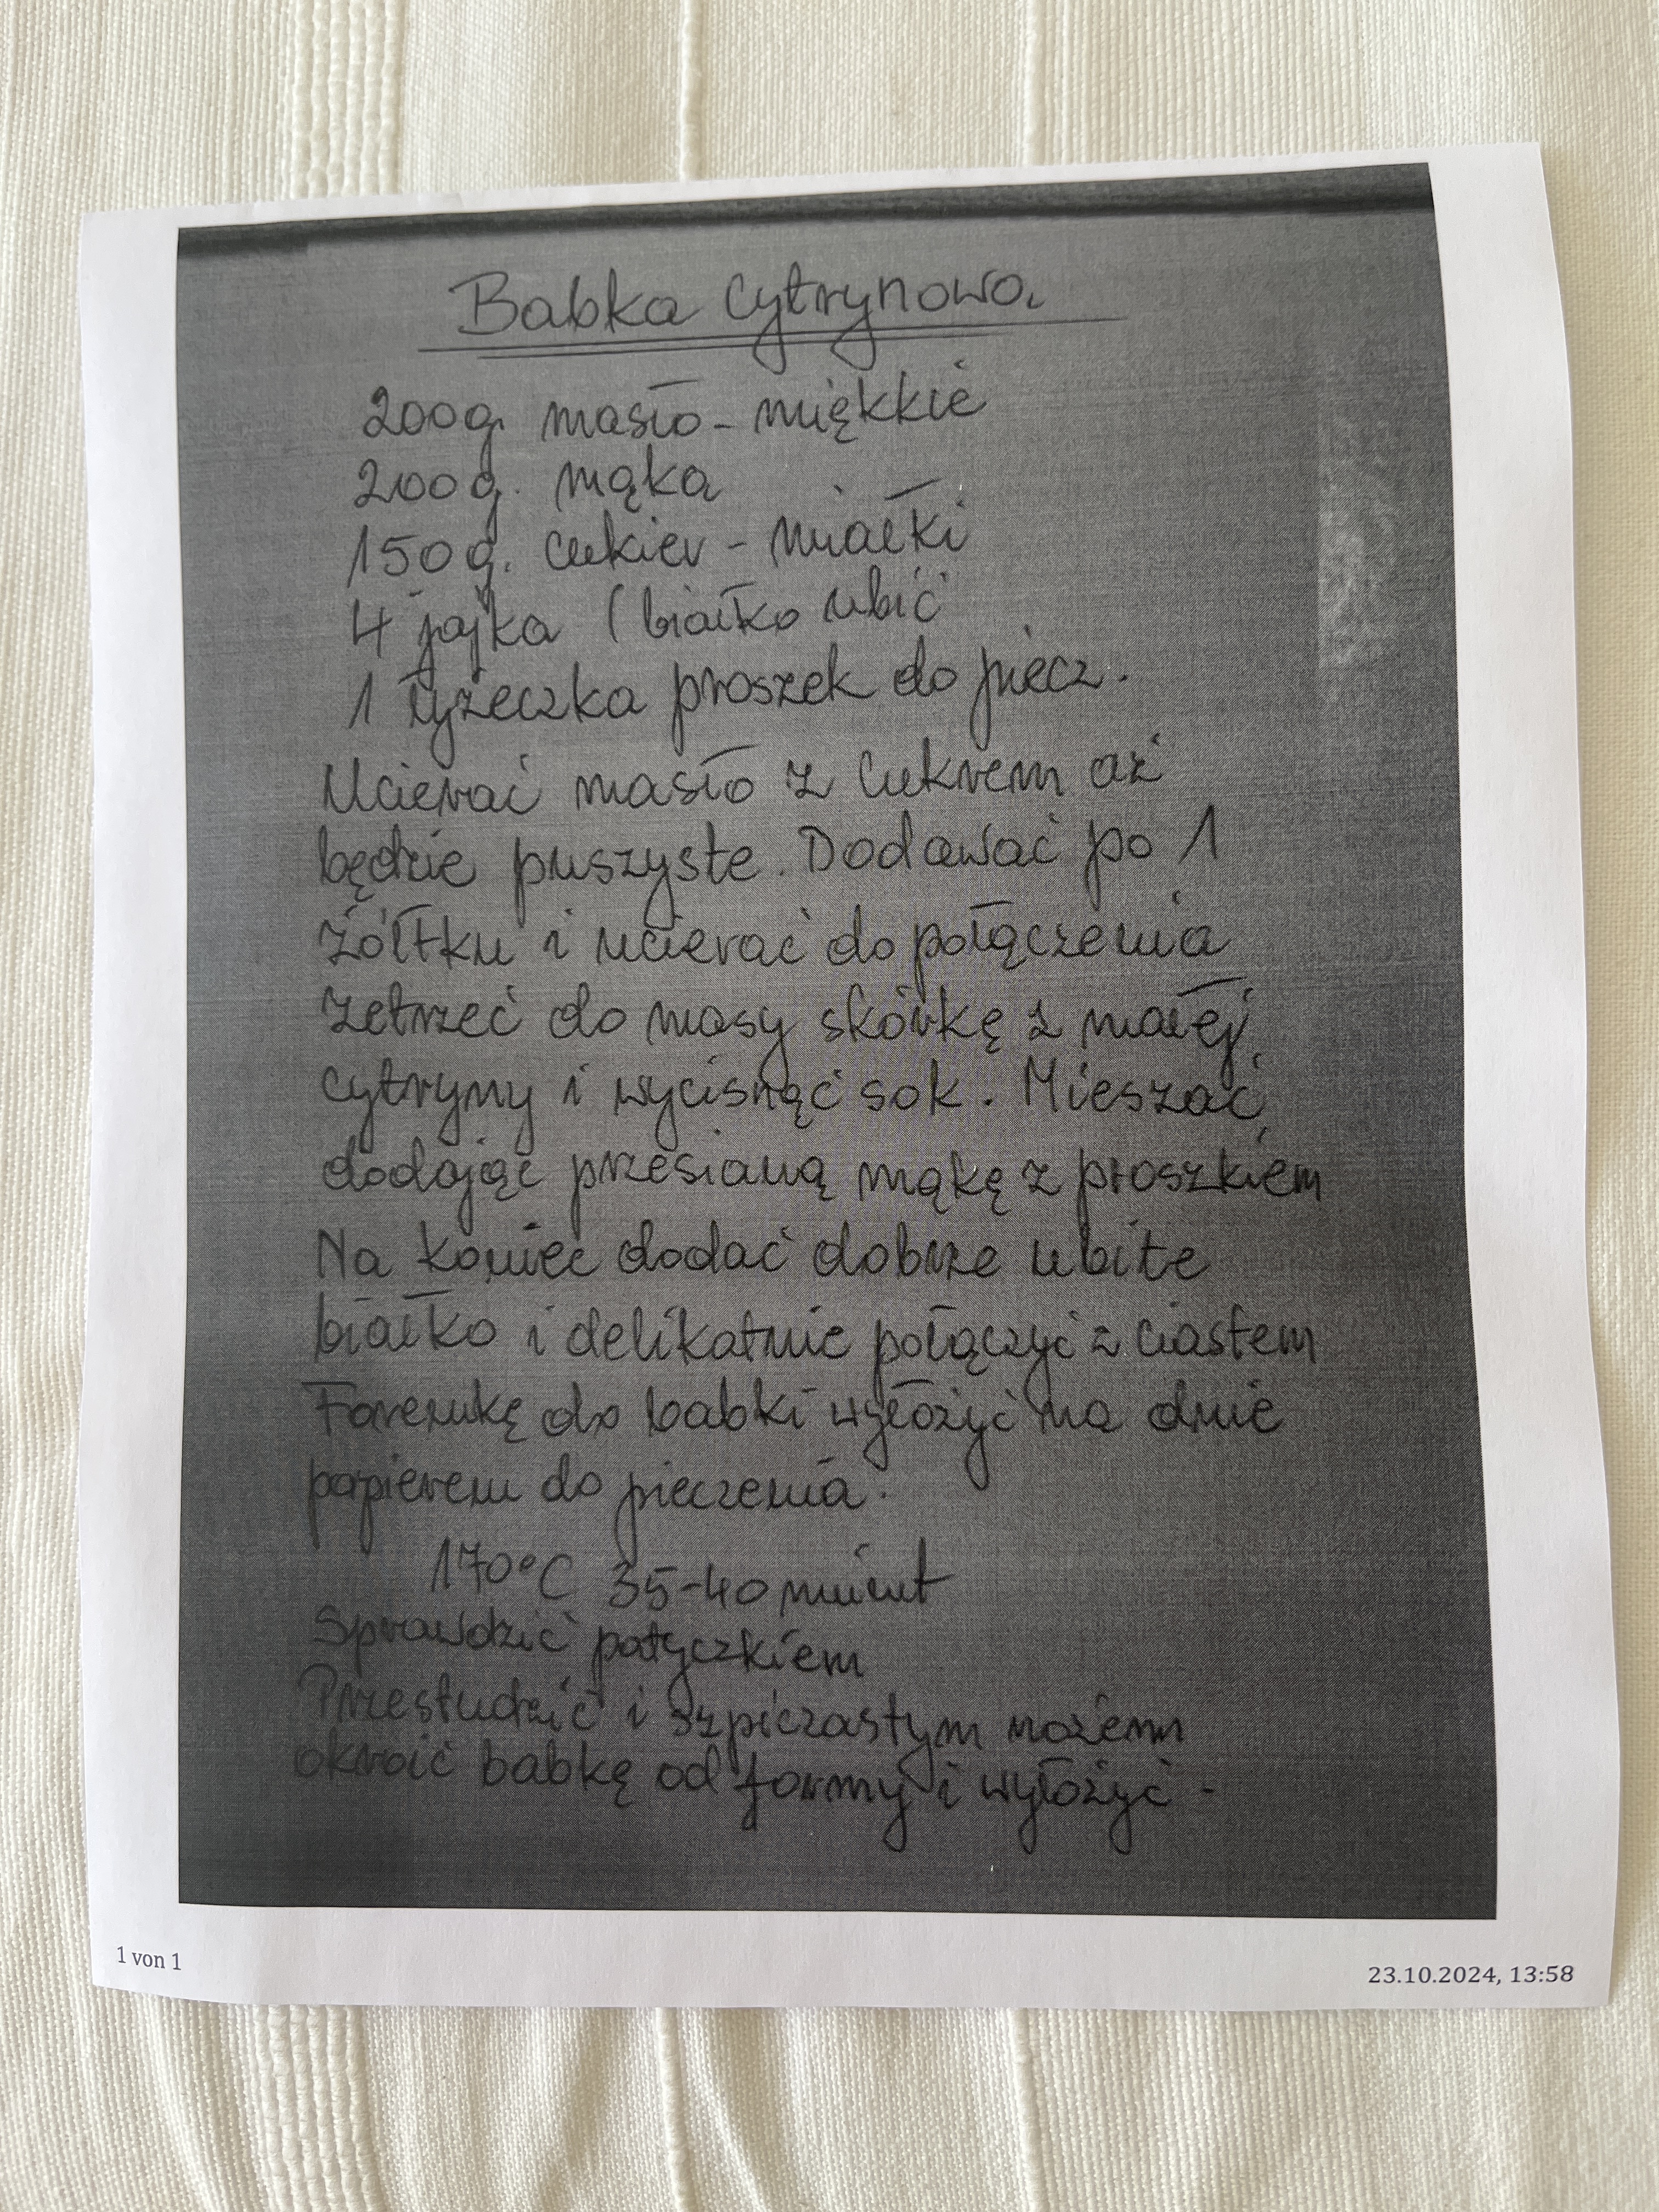 Babka Cytrynowa
200g. masło - miękkie
200g. mąka
150g. cukier - miałki
4 jajka (białko ubić
1 łyżeczka proszek do piecz.
Ucierać masło z cukrem aż
będzie puszyste. Dodawać po 1
żółtku i ucierać do połączenia
zetrzeć do masy skórkę z małej
cytryny i wycisnąć sok. Mieszać
dodając przesianą mąkę z proszkiem
Na koniec dodać dobrze ubite
białko i delikatnie połączyć z ciastem
Foremkę do babki wyłożyć na dnie
papierem do pieczenia.
170°C 35-40 minut
Sprawdzić patyczkiem
Przestudzić i szpiczastym nożem
okroić babkę od formy i wyłożyć -
1 von 1
23.10.2024, 13:58